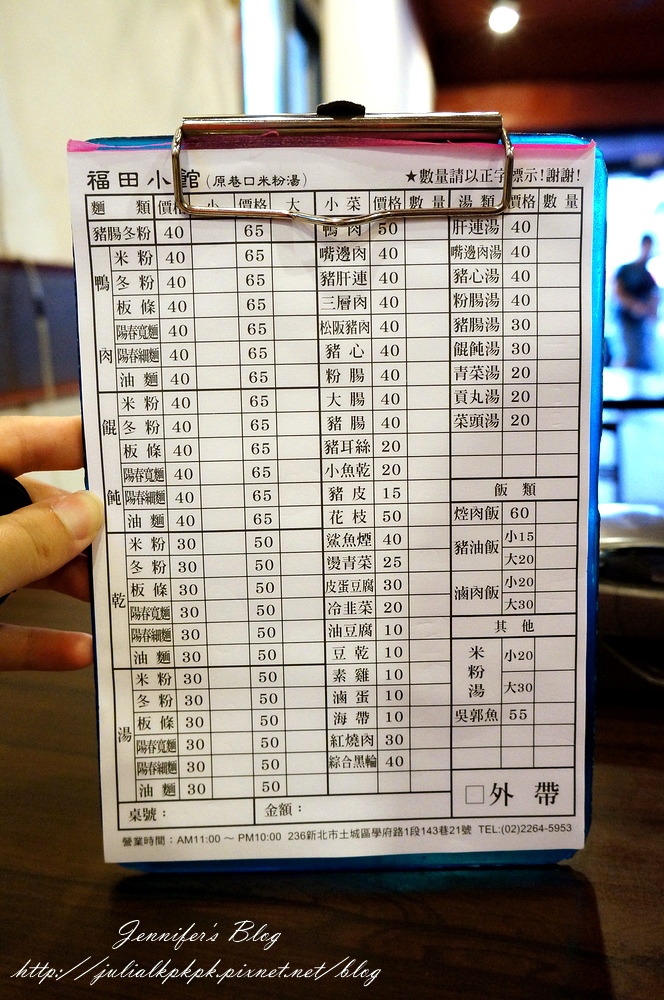 福田小館(原巷口米粉湯) ★數量請以正字標示!謝謝!
麵 類 價格 小 價格 大 小菜 價格 數量 湯類 價格 數量
豬腸冬粉 40 65 鴨肉 50 肝連湯 40
鴨肉 米粉 40 65 嘴邊肉 40 嘴邊肉湯 40
冬粉 40 65 豬肝連 40 豬心湯 40
板條 40 65 三層肉 40 粉腸湯 40
陽春寬麵 40 65 松阪豬肉 40 豬腸湯 30
陽春細麵 40 65 豬心 40 餛飩湯 30
油麵 40 65 粉腸 40 青菜湯 20
餛飩 米粉 40 65 大腸 40 貢丸湯 20
冬粉 40 65 豬腸 40 菜頭湯 20
板條 40 65 豬耳絲 20
陽春寬麵 40 65 小魚乾 20
陽春細麵 40 65 豬皮 15 飯類
油麵 40 65 花枝 50 焢肉飯 60
乾 米粉 30 50 鯊魚煙 40 豬油飯 小15
冬粉 30 50 燙青菜 25 大20
板條 30 50 皮蛋豆腐 30 滷肉飯 小20
陽春寬麵 30 50 冷韭菜 20 大30
陽春細麵 30 50 油豆腐 10 其他
油麵 30 50 豆乾 10 米粉湯 小20
湯 米粉 30 50 素雞 10
冬粉 30 50 滷蛋 10 大30
板條 30 50 海帶 10 吳郭魚 55
陽春寬麵 30 50 紅燒肉 30
陽春細麵 30 50 綜合黑輪 40
油麵 30 50
桌號： 金額： □外帶
營業時間：AM11:00 ～ PM10:00 236新北市土城區學府路1段143巷21號 TEL:(02)2264-5953
Jennifer's Blog
http://julialkpkpk.pixnet.net/blog